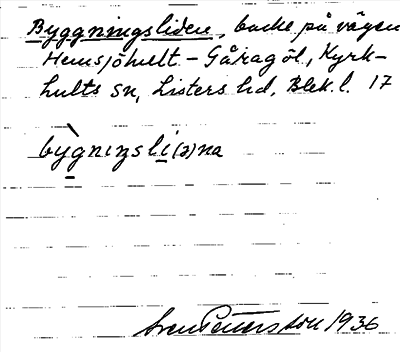 Byggningsliden, backe på vägen
Hemsjöhult - Gåragöl, Kyrk-
hults sn, Listers hd, Blek.l. 17
by̆gnıŋsli(ə)na
Sven Pettersson 1936